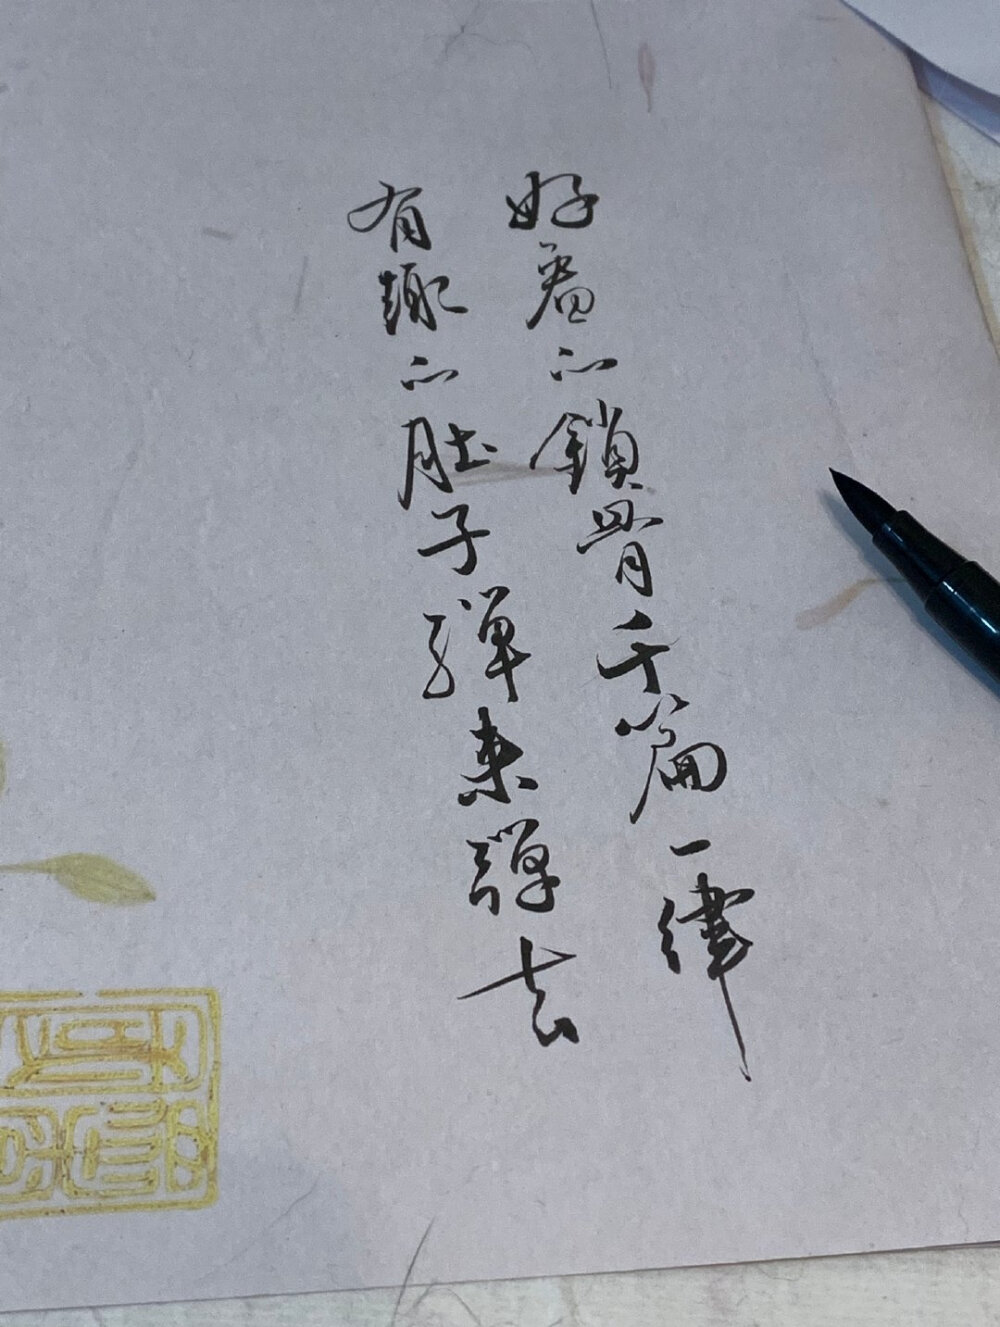 好看的鎖骨千篇一律
有趣的肚子彈来彈去